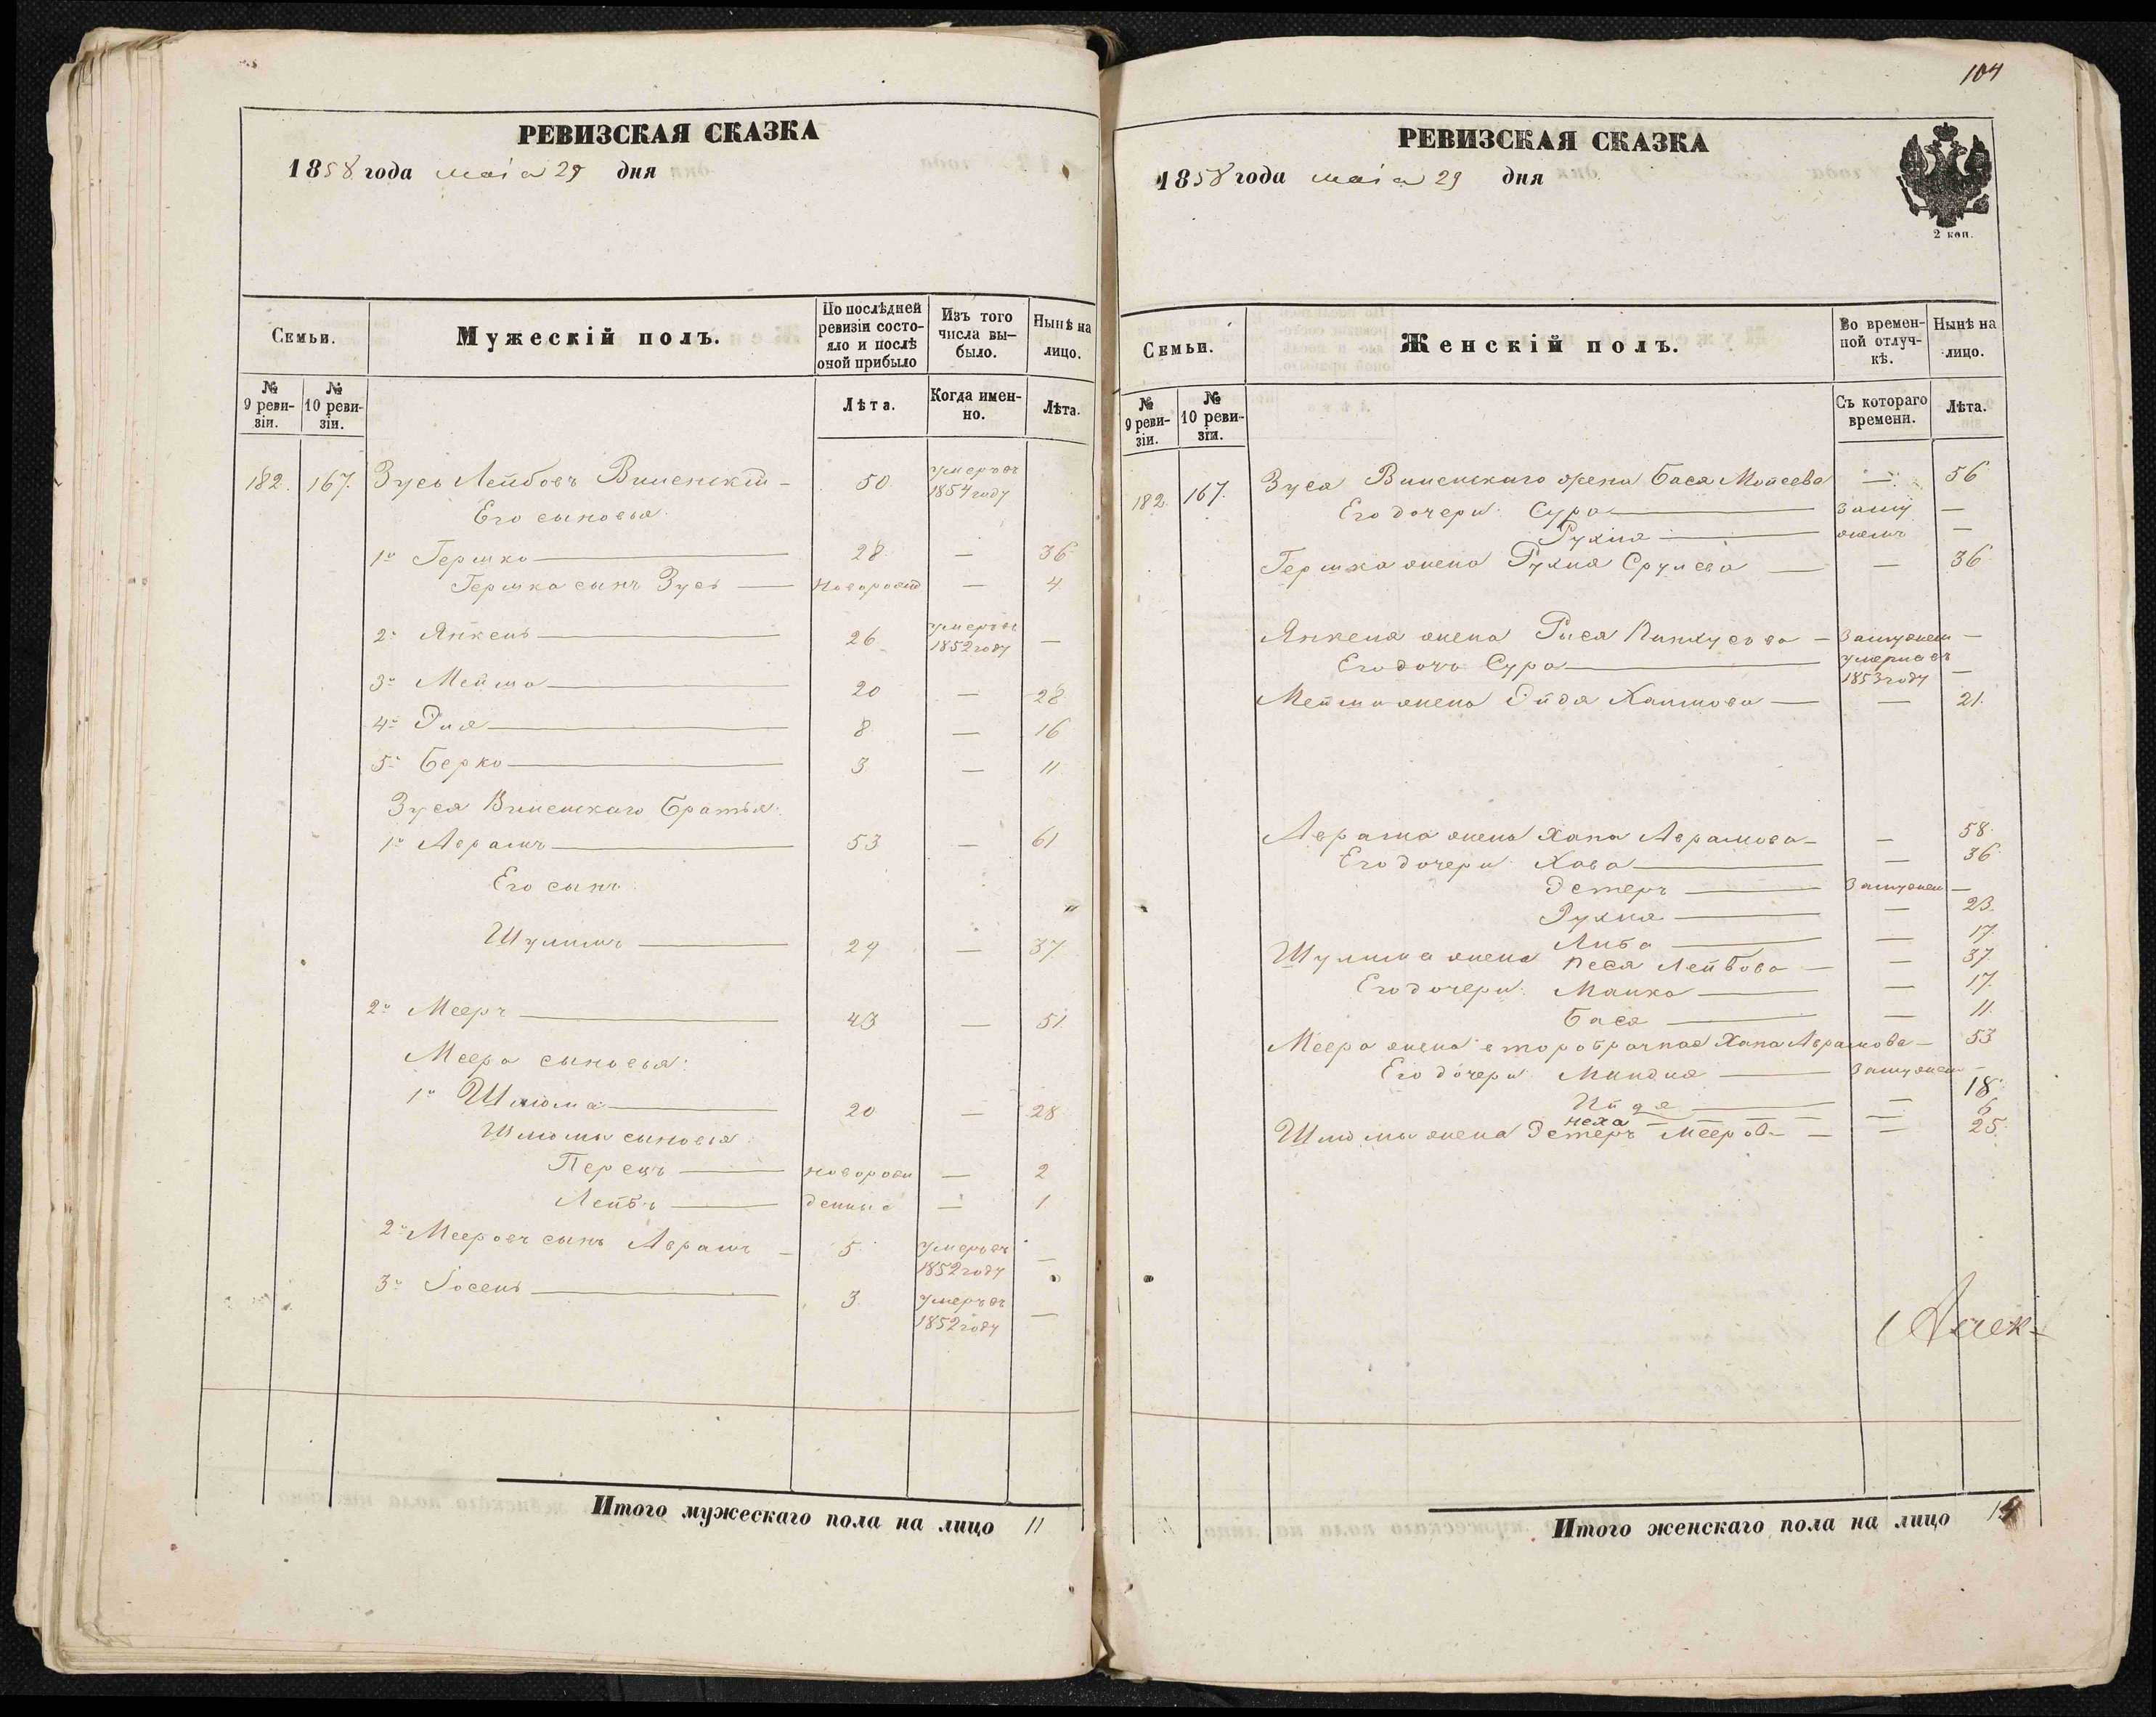 РЕВИЗСКАЯ СКАЗКА
1858 года маія 29 дня
Семьи.
Мужескій полъ.
По послѣдней ревизіи состо-
яло и послѣ
оной прибыло
Изъ того
числа вы-
было.
Нынѣ на
лицо.
№
9 реви-
зіи.
№
10 реви-
зіи.
Лѣта.
Когда имен-
но.
Лѣта.
182. 167. Зусь Лейбовъ 50 умеръ въ
1854 году
Его сыновья:
1й Гершко 28 — 36
Гершка сынъ Зусь — 4
2й Янкель 26 умеръ въ
1852 году —
3й Мейша 20 — 28
4й 8 — 16
5й Берко 3 — 11
Зуся братья:
1й Аврамъ 53 — 61
Его сынъ:
Шулимъ 29 — 37
2й Мееръ 43 — 51
Меера сыновья:
1й Шлiома 20 — 28
Шлiомы сыновья:
Перецъ новорож — 2
Лейбъ денные — 1
2й Мееровъ сынъ Аврамъ — 5 умеръ въ
1852 году —
3й Іосель 3 умеръ въ
1852 году —
Итого мужескаго пола на лицо 11
104
РЕВИЗСКАЯ СКАЗКА
1858 года маія 29 дня
2 коп.
Семьи.
Женскій полъ.
Во времен-
ной отлуч-
кѣ.
Нынѣ на
лицо.
№
9 реви-
зіи.
№
10 реви-
зіи.
Съ котораго
времени.
Лѣта.
182. 167. Зуся жена Бася — 56
Его дочери: Сура заму —
Рухля жемъ —
Гершка жена Рухля Срулева — — 36
Янкеля жена Пинхусова — Замужем —
Его дочь Сура умерла въ
1853 году —
Мейши жена Хаимова — — 21.
Аврама жена Хана Аврамова — — 58.
Его дочери: Хава — 36
Эстеръ Замужем —
Рухля — 23.
Либа — 17.
Шулима жена Песя Лейбова — — 37.
Его дочери: Малка — 17.
Бася — 11.
Меера жена второбрачная Хана Аврамова — 53
Его дочери: Миндля Замужем —
— 18.
Неха — 6
Шлiомы жена Эстеръ — — 25.
Алек-
Итого женскаго пола на лицо 14